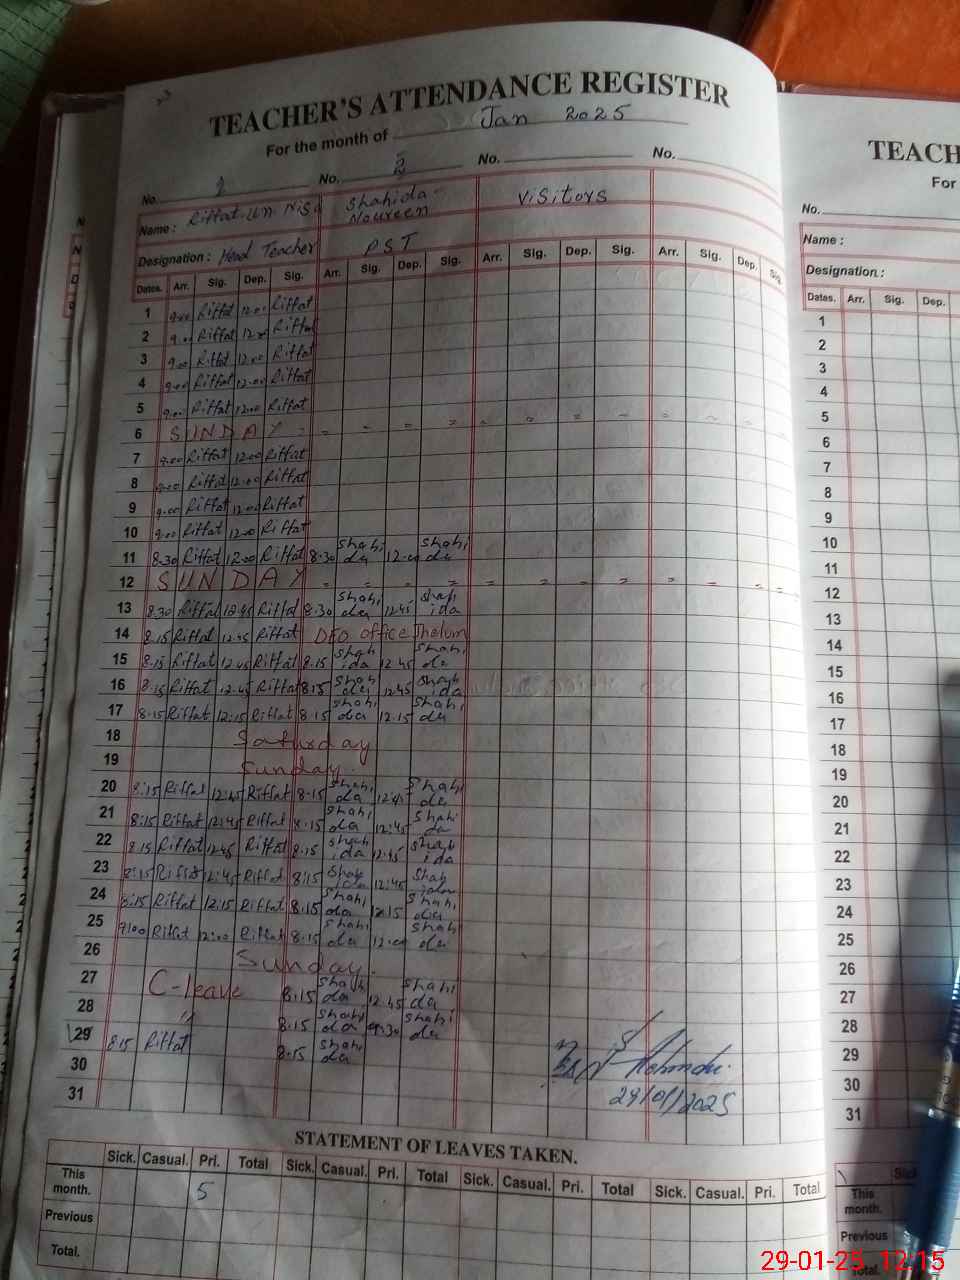 TEACHER'S ATTENDANCE REGISTER
For the month of Jan 2025
No. 1 No. 2 No. No.
Name : Riffat-Un-Nisa Shahida Noureen Visitors
Designation : Head Teacher PST
Dates. Arr. Sig. Dep. Sig. Arr. Sig. Dep. Sig. Arr. Sig. Dep. Sig. Arr. Sig. Dep. Sig.
1 9.00 Riffat 12.00 Riffat
2 9.00 Riffat 12.00 Riffat
3 9.00 Riffat 12.00 Riffat
4 9.00 Riffat 12.00 Riffat
5 9.00 Riffat 12.00 Riffat
6 SUNDAY
7 9.00 Riffat 12.00 Riffat
8 9.00 Riffat 12.00 Riffat
9 9.00 Riffat 12.00 Riffat
10 9.00 Riffat 12.00 Riffat
11 8.30 Riffat 12.00 Riffat 8.30 Shahi da 12.00 Shahi da
12 SUNDAY
13 8.30 Riffat 12.45 Riffat 8.30 Shahi da 12.45 Shah ida
14 8.15 Riffat 12.45 Riffat DEO office Jhelum
15 8.15 Riffat 12.45 Riffat 8.15 Shah ida 12.45 Shahi da
16 8.15 Riffat 12.45 Riffat 8.15 Shahi da 12.45 Shah ida
17 8.15 Riffat 12:15 Riffat 8.15 Shahi da 12.15 Shahi da
18 Saturday
19 Sunday.
20 8:15 Riffat 12:45 Riffat 8.15 Shahi da 12:45 Shahi da
21 8:15 Riffat 12:45 Riffat 8.15 Shahi da 12:45 Shahi da
22 8.15 Riffat 12:45 Riffat 8.15 Shah ida 12:45 Shah ida
23 8:15 Riffat 12:45 Riffat 8:15 Shah ida 12:45 Shah ida
24 8:15 Riffat 12:15 Riffat 8.15 Shahi da 12:15 Shahi da
25 9:00 Riffat 12:00 Riffat 8.15 Shahi da 12.00 Shahi da
26 Sunday.
27 C-leave 8.15 Shahi da 12.45 Shahi da
28 " 8.15 Shahi da Shahi da
29 8.15 Riffat 8.15 Shahi da
30
31
29/01/2025
STATEMENT OF LEAVES TAKEN.
Sick. Casual. Pri. Total Sick. Casual. Pri. Total Sick. Casual. Pri. Total Sick. Casual. Pri. Total
This month. 5
Previous
Total.
TEACH
For
No.
Name :
Designation :
Dates. Arr. Sig. Dep.
1
2
3
4
5
6
7
8
9
10
11
12
13
14
15
16
17
18
19
20
21
22
23
24
25
26
27
28
29
30
31
This month.
Previous
Total.
29-01-25 12:15